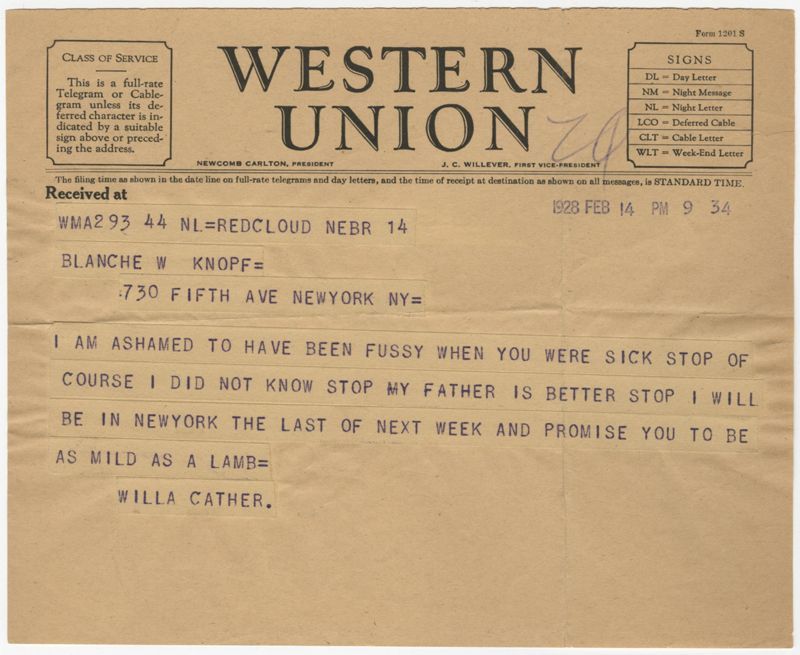 Form 1201 S
CLASS OF SERVICE
This is a full-rate
Telegram or Cable-
gram unless its de-
ferred character is in-
dicated by a suitable
sign above or preced-
ing the address.
WESTERN
UNION
NEWCOMB CARLTON, PRESIDENT
J. C. WILLEVER, FIRST VICE-PRESIDENT
SIGNS
DL = Day Letter
NM = Night Message
NL = Night Letter
LCO = Deferred Cable
CLT = Cable Letter
WLT = Week-End Letter
The filing time as shown in the date line on full-rate telegrams and day letters, and the time of receipt at destination as shown on all messages, is STANDARD TIME.
Received at
1928 FEB 14 PM 9 34
WMA293 44 NL=REDCLOUD NEBR 14
BLANCHE W KNOPF=
:730 FIFTH AVE NEWYORK NY=
I AM ASHAMED TO HAVE BEEN FUSSY WHEN YOU WERE SICK STOP OF
COURSE I DID NOT KNOW STOP MY FATHER IS BETTER STOP I WILL
BE IN NEWYORK THE LAST OF NEXT WEEK AND PROMISE YOU TO BE
AS MILD AS A LAMB=
WILLA CATHER.